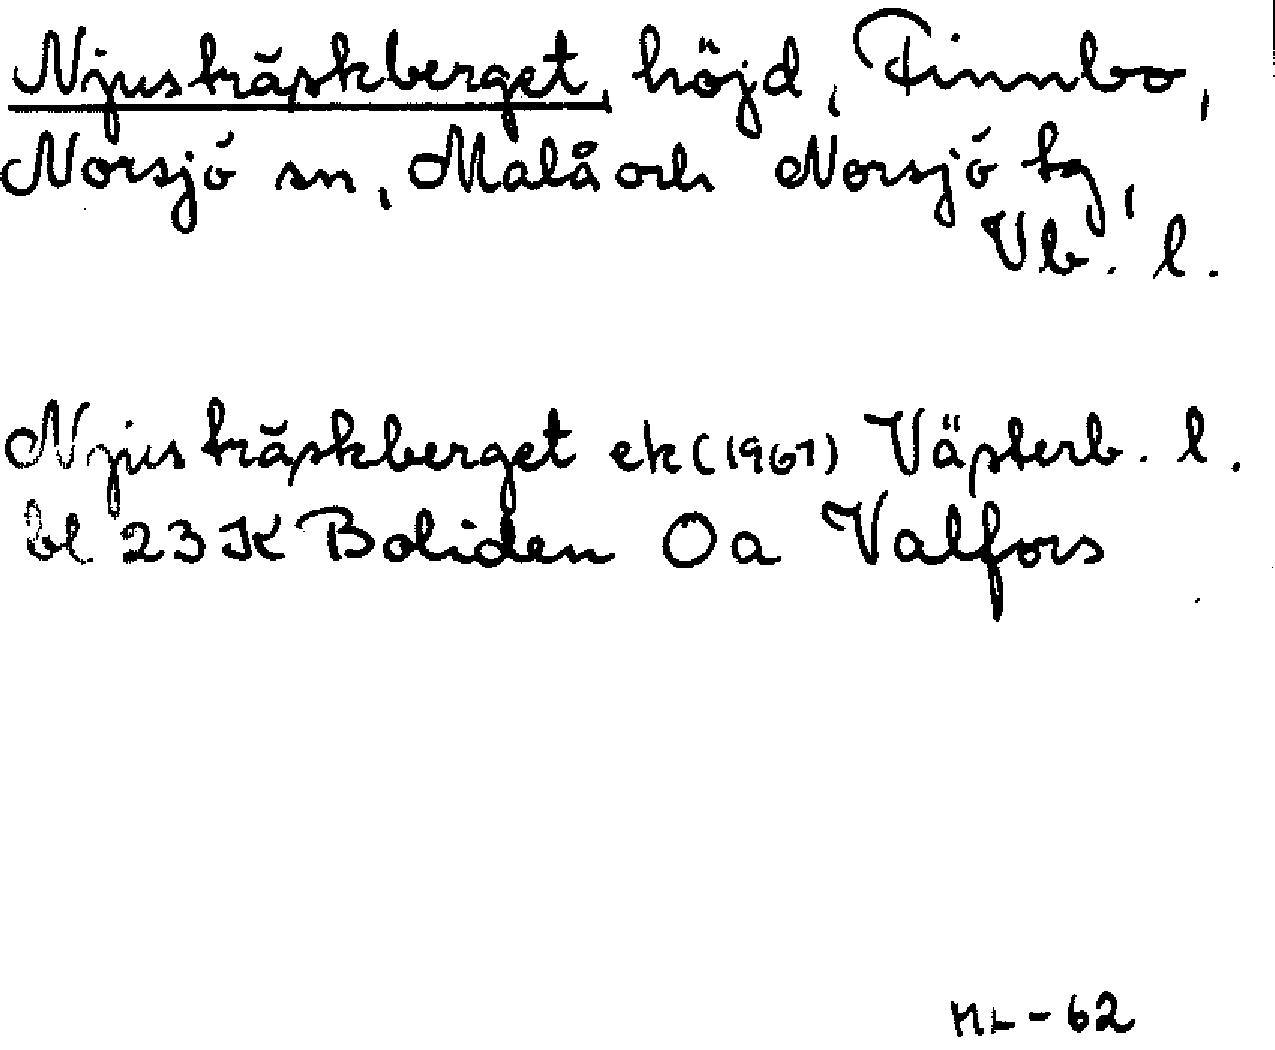 Njusträskberget, höjd, Finnbo,
Norsjö sn, Malå och Norsjö tg,
Vb. l.
Njusträskberget ek (1961) Västerb. l.
bl 23 K Boliden Öa Valfors
ML-62